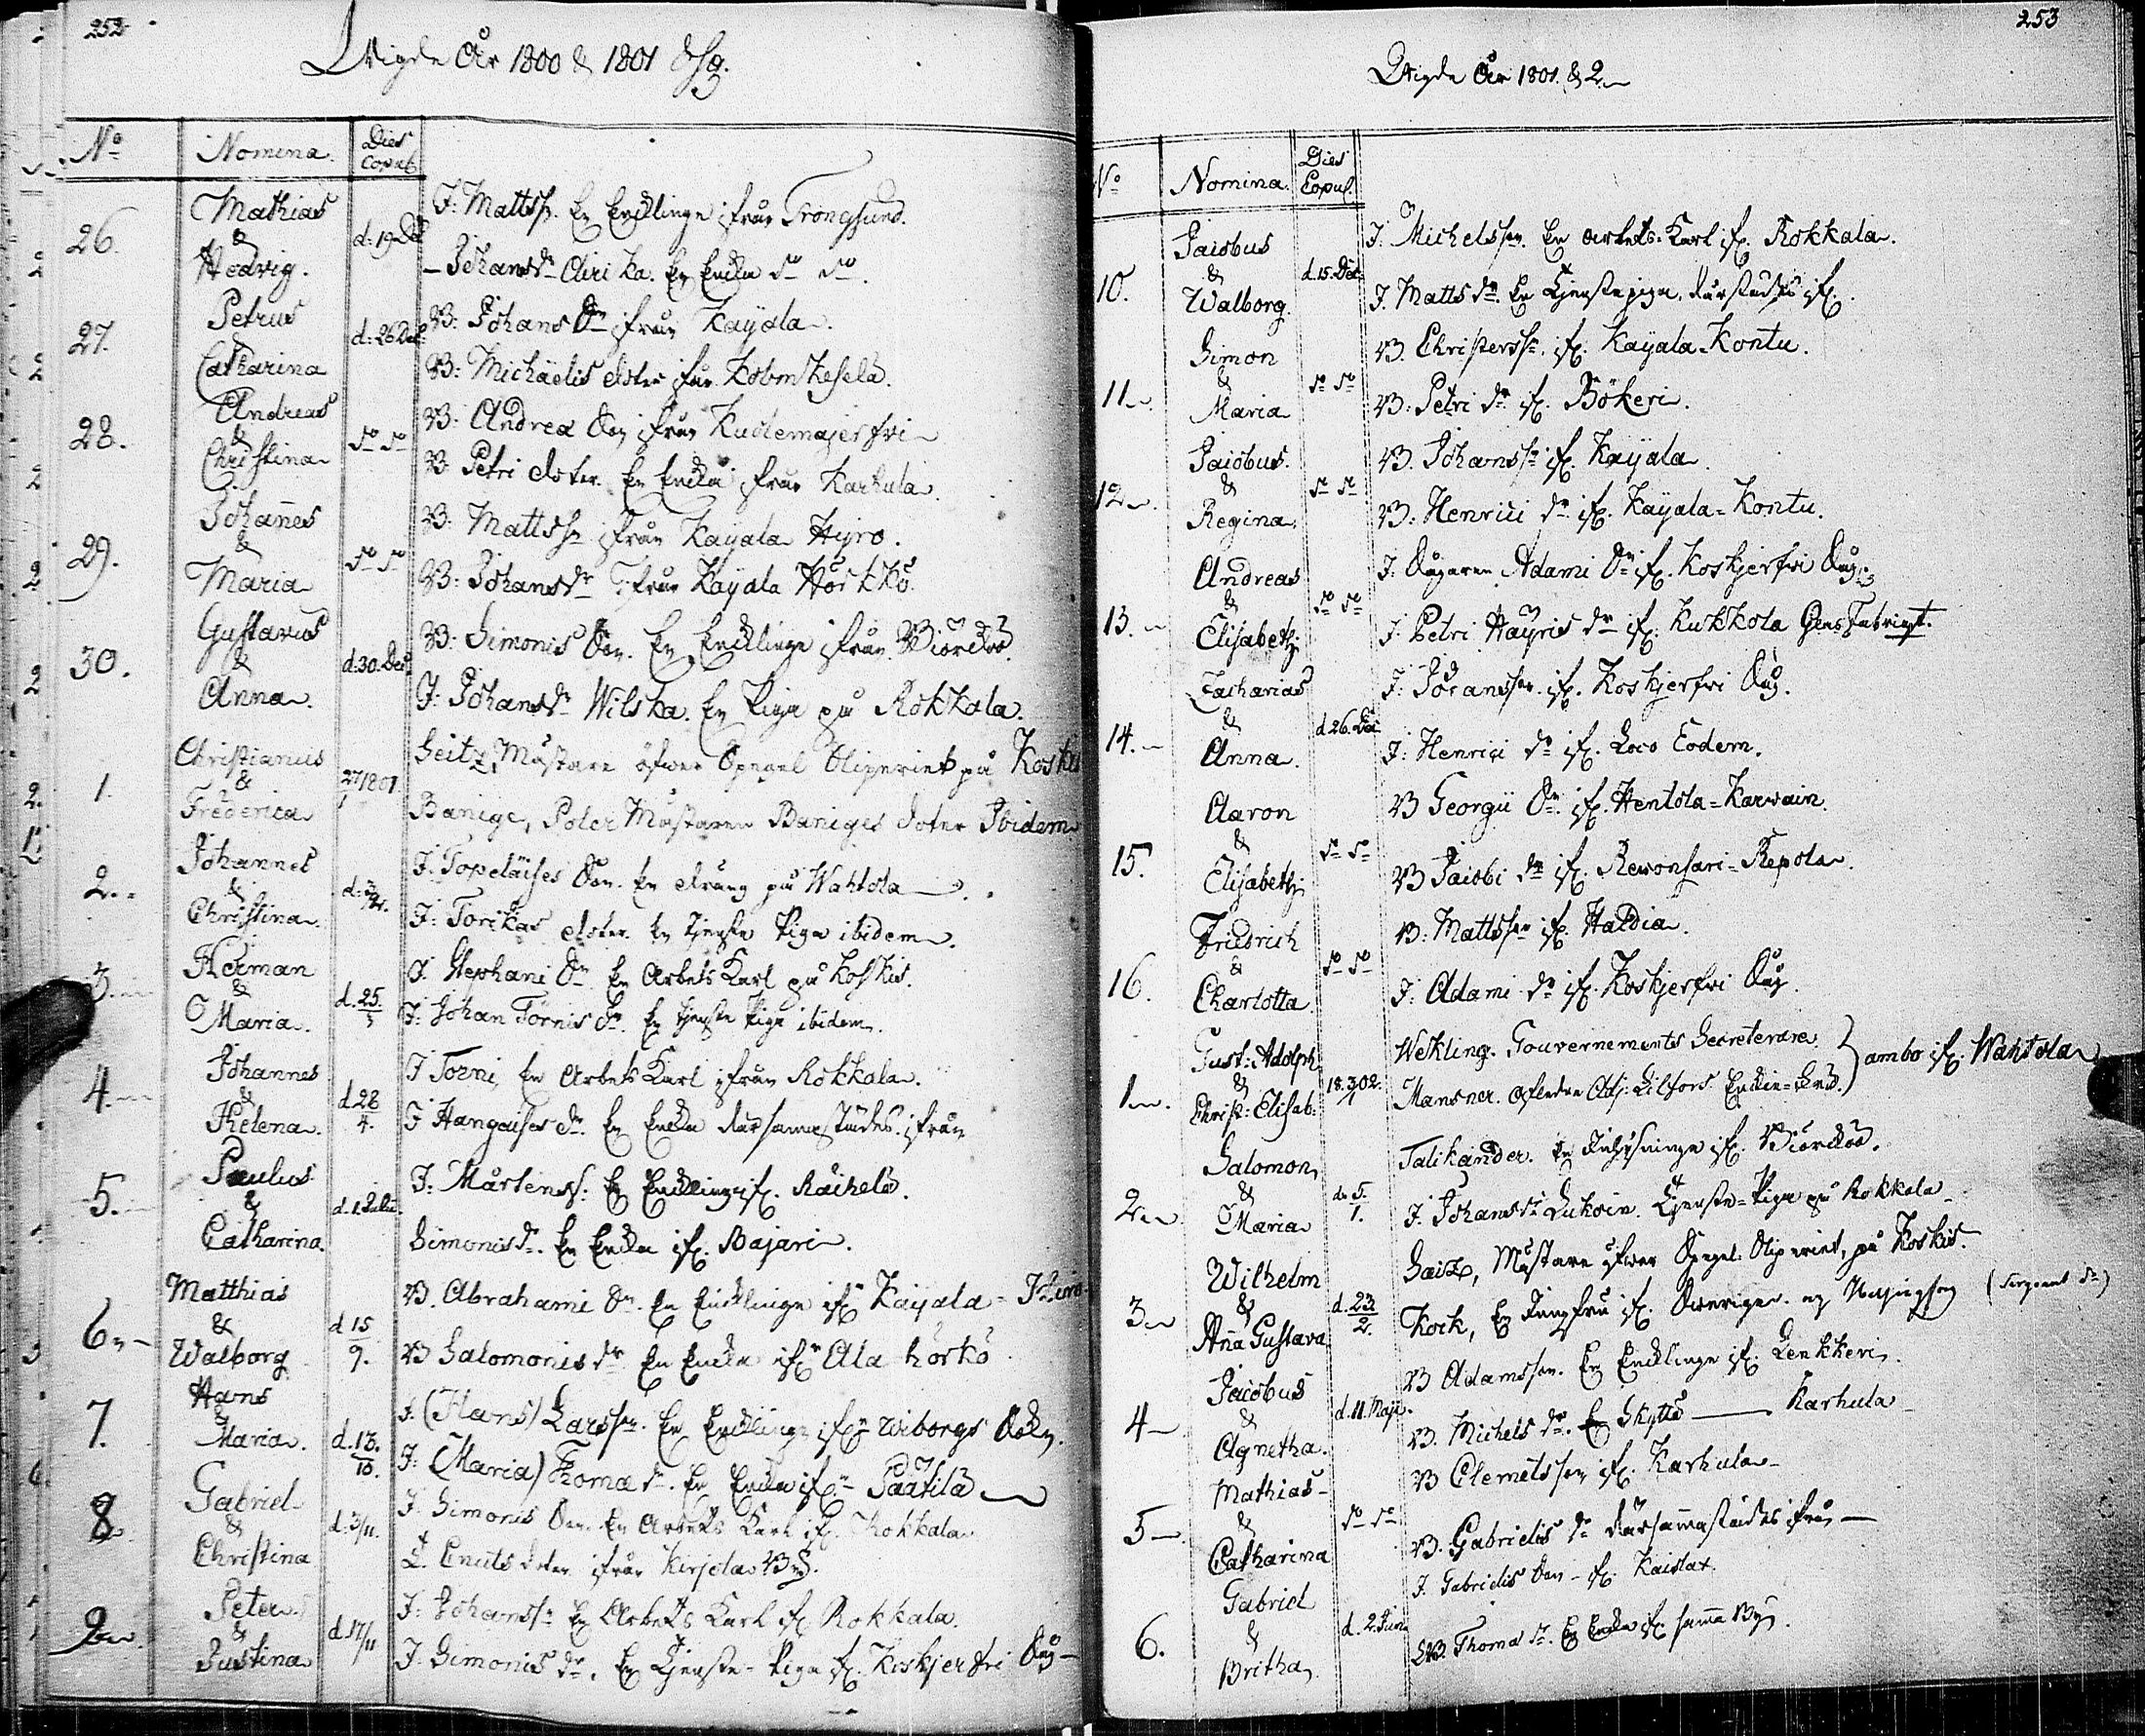 252
Wigde År 1800 & 1801
No Nomina. Dies Copul.
26. Mathias & Hedvig. d: 19 Dec
J: Mattss. En Encklinge ifrån Trongsund.
Johansdr Airika. En Encka do do.
27. Petrus & Catharina d: 26 Dec.
B: Johans Sn ifrån Kayala.
B: Michaëlis doter ifrån
28. Andreas & Christina do do
B: Andreæ Son ifrån
B. Petri doter. En Encka ifrån Karhula.
29. Johannes & Maria do do
B. Mattssn ifrån Kayala Hyro.
B: Johansdr ifrån Kayala Hörkkö.
30. Gustavus & Anna. d. 30. Dec.
B: Simonis Son. En Encklinge ifrån Biörckö.
J: Johansdr Wilska. En Piga på Rokkala.
1. Christianus & Frederica 27/1 1801.
Seitz, Mästare öfwer Spegel Sliperiet på
Banige, Poler Mästaren Baniges doter Ibidem
2. Johannes & Christina. d:
J. Topeläises Son. En dräng på Wahtola.
J: Torikas doter. En tjenste Piga ibidem.
3. Herman & Maria. d. 25
J. Stephani Sn. En Arbets Karl på Koskis.
J: Johan Törnis dr. En tjenste Piga ibidem.
4. Johannes & Helena. d. 28/4.
J Torni, En Arbets Karl ifrån Rokkala.
J Hangaises dr. En Encka därsammastädes ifrån
5. Paulus & Catharina. d. 1. Julii.
J: Mårtenss: En Encklinge if. Räihelä.
Simonis dr. En Encka if. Bajari.
6. Matthias & Walborg d 15/9.
B. Abrahami Sn. En Encklinge ifn Kayala=
B Salomonis dr En Encka ifn Ala hörkö
7. Hans & Maria. d. 13./10.
J. (Hans) Larssn. En Encklinge ifn Wiborgs Sokn.
J: (Maria) Thomæ dr. En Encka ifn Päätilä
8. Gabriel & Christina d. 3/11.
J. Simonis Son En Arbets Karl if. Rokkala
Cnuts doter ifrån Kirjola
9. Peter & Justina d 17/11
J: Johanssn En Arbets Karl if. Rokkala.
J. Simonis dr. En Tjenste-Piga if. Koskjerfvi Såg
253
Wigde År 1801. & 2.
No Nomina. Dies Copul.
10. Jacobus & Walborg. d. 15. Dec
J. Michelsson. En arbets-Karl if. Rokkala.
J. Matts dr. En Tjenstepiga, därstädes if.
11. Simon & Maria do do
B. Christerssn. if. Kayala-Kontu.
B: Petri dr. if. Bökeri.
12. Jacobus. & Regina. do do
B. Johanssn if. Kayala.
B: Henrici dr. if. Kayala=Kontu.
13. Andreas & Elisabeth do do
J: Sågaren Adami Sn if. Koskjerfvi Såg.
J: Petri Häyris dr if. Kukkola
14. Zacharias & Anna. d 26. Dec
J: Joranssn. if. Koskjerfvi Såg.
J: Henrici dr if. Loco Eodem.
15. Aaron & Elisabeth do do
B Georgii Sn if. Hentola=Karwain.
B Jacobi dr if. Rewonsari=Repola.
16. Friedrich & Charlotta do do
B: Mattsson if. Haldia.
J: Adami dr if. Koskjerfvi Såg.
1. Gust: Adolph & Christ: Elisab: 18 3/1 02.
Wekling. Gouvernements Secreterare.
Mansner. Afledne Adj: Encke=Fru.
ambo if. Wahtola
2. Salomon & Maria d. 5./1.
Talikander. En Inhysninge if. Biörckö.
J. Johansdr Lukoin. Tjenste=Piga på Rokkala
3. Wilhelm & Aña Gustava d. 23/2.
Saiz, Mästare öfwer Spegel Sliperiet, på Koskis.
Kock, En Jungfru if. Swerige. (Sergeant dr)
4 Jacobus & Agnetha. d. 11. Maji
B Adamsson. En Encklinge if. Lenkkeri.
B. Michels dr. E Skytts — Karhula
5 Mathias & Catharina do do
B Clemetsson if. Karhula
B. Gabrielis dr därsammastädes ifrån
6. Gabriel & Britha. d. 2. Juni
J. Gabrielis Son if. Kaislax.
Thomæ dr. En Encka if. samma By.